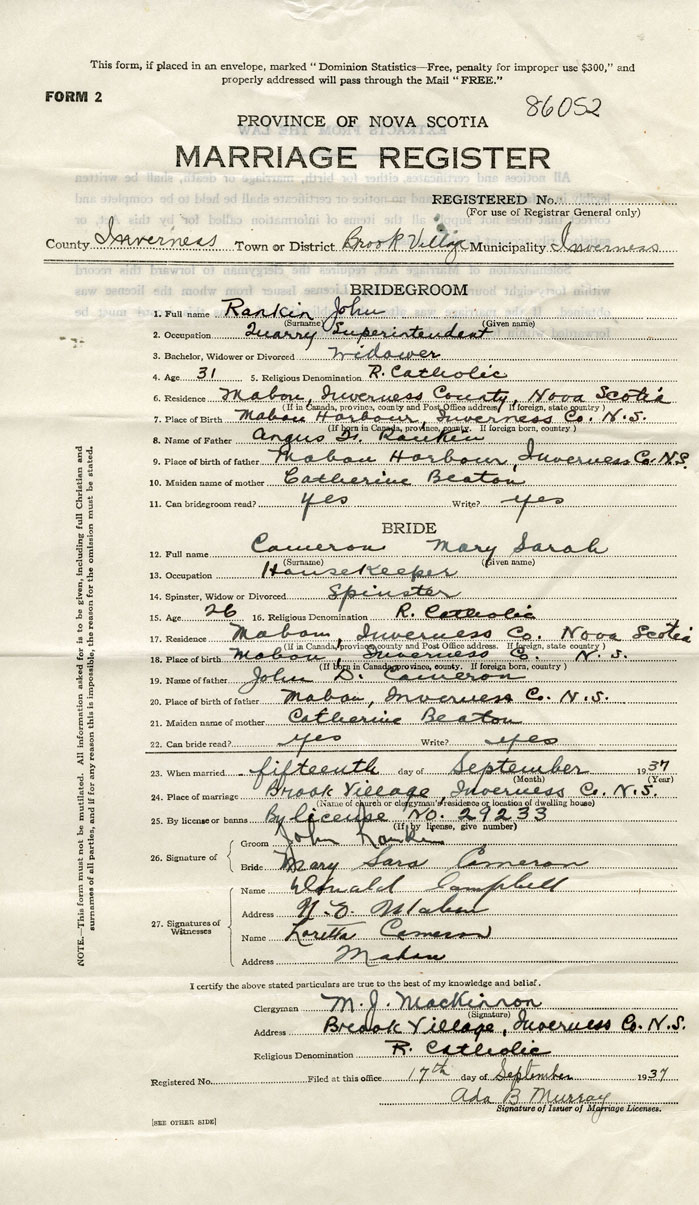 This form, if placed in an envelope, marked "Dominion Statistics—Free, penalty for improper use $300," and
properly addressed will pass through the Mail "FREE."
FORM 2
86052
PROVINCE OF NOVA SCOTIA
MARRIAGE REGISTER
REGISTERED No.
(For use of Registrar General only)
County Inverness Town or District Brook Village Municipality Inverness
BRIDEGROOM
1. Full name Rankin John
(Surname) (Given name)
2. Occupation Quarry Superintendent
3. Bachelor, Widower or Divorced Widower
4. Age 31 5. Religious Denomination R. Catholic
6. Residence Mabou, Inverness County, Nova Scotia
(If in Canada, province, county and Post Office address, If foreign, state country)
7. Place of Birth Mabou Harbour, Inverness Co. N.S.
(If born in Canada, province, county. If foreign born, country)
8. Name of Father Angus Rankin
9. Place of birth of father Mabou Harbour, Inverness Co. N.S.
10. Maiden name of mother Catherine Beaton
11. Can bridegroom read? yes Write? yes
BRIDE
12. Full name Cameron Mary Sarah
(Surname) (Given name)
13. Occupation Housekeeper
14. Spinster, Widow or Divorced Spinster
15. Age 26 16. Religious Denomination R. Catholic
17. Residence Mabou, Inverness Co. Nova Scotia
(If in Canada, province, county and Post Office address. If foreign, state country)
18. Place of birth Mabou Inverness Co. N.S.
(If born in Canada, province, county. If foreign born, country)
19. Name of father John D. Cameron
20. Place of birth of father Mabou, Inverness Co. N.S.
21. Maiden name of mother Catherine Beaton
22. Can bride read? yes Write? yes
23. When married fifteenth day of September 1937
(Month) (Year)
24. Place of marriage Brook Village, Inverness Co. N.S.
(Name of church or clergyman's residence or location of dwelling house)
25. By license or banns By license No. 29233
(If by license, give number)
26. Signature of
Groom John Rankin
Bride Mary Sara Cameron
27. Signatures of Witnesses
Name Donald Campbell
Address N.E. Mabou
Name Loretta Cameron
Address Mabou
I certify the above stated particulars are true to the best of my knowledge and belief.
Clergyman M. J. MacKinnon
(Signature)
Address Brook Village, Inverness Co. N.S.
Religious Denomination R. Catholic
Registered No. Filed at this office 17th day of September 1937
Ada B Murray
Signature of Issuer of Marriage Licenses.
[SEE OTHER SIDE]
NOTE.—This form must not be mutilated. All information asked for is to be given, including full Christian and
surnames of all parties, and if for any reason this is impossible, the reason for the omission must be stated.